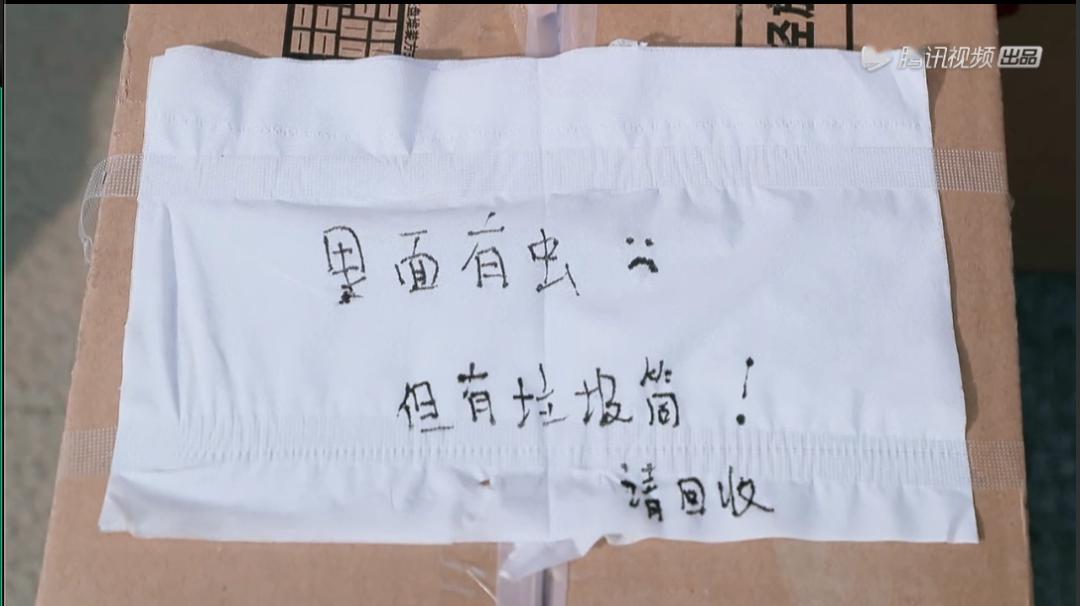 腾讯视频 出品
里面有虫 :(
但有垃圾筒！
请回收